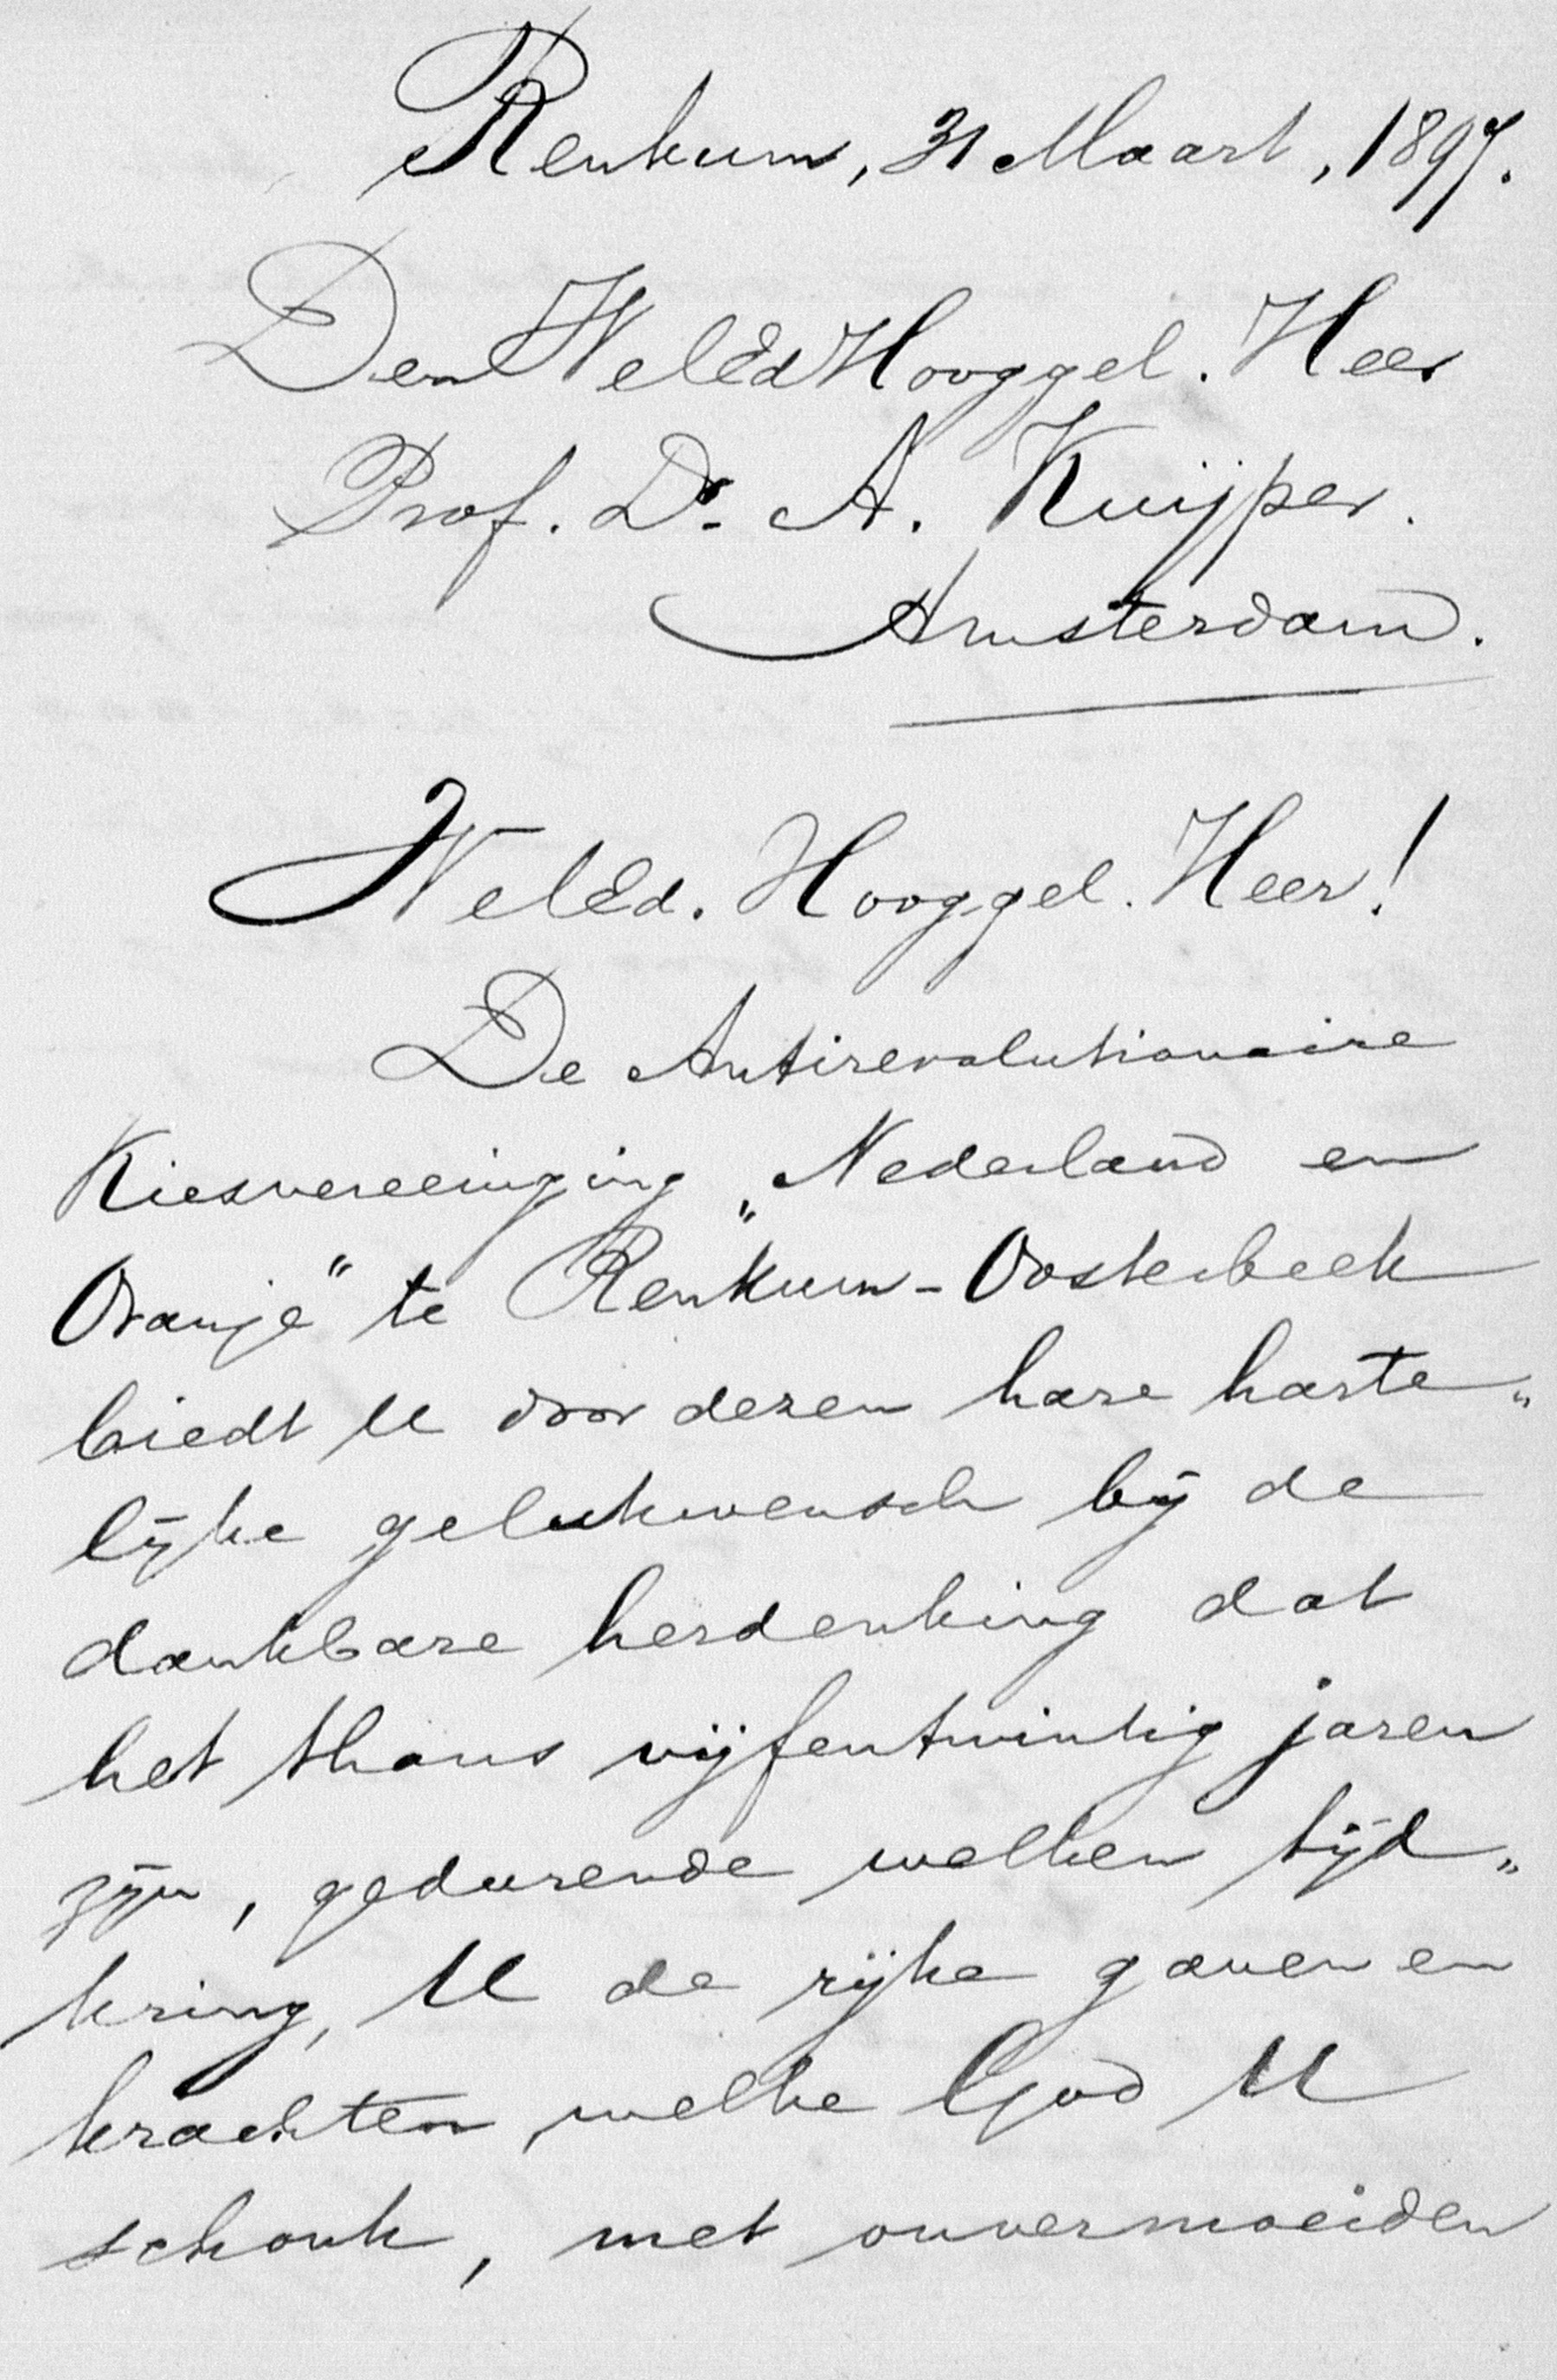 Renkum, 31 Maart, 1897.
Den WelEd Hooggel. Heer
Prof. Dr. A. Kuijper.
Amsterdam.
WelEd. Hooggel. Heer!
De Antirevolutionaire
Kiesvereeniging „Nederland en
Oranje" te Renkum-Oosterbeek
biedt U door dezen hare harte„
lijke gelukwensch bij de
dankbare herdenking dat
het thans vijfentwintig jaren
zijn, gedurende welken tijd„
kring, U de rijke gaven en
krachten, welke God U
schonk, met onvermoeiden